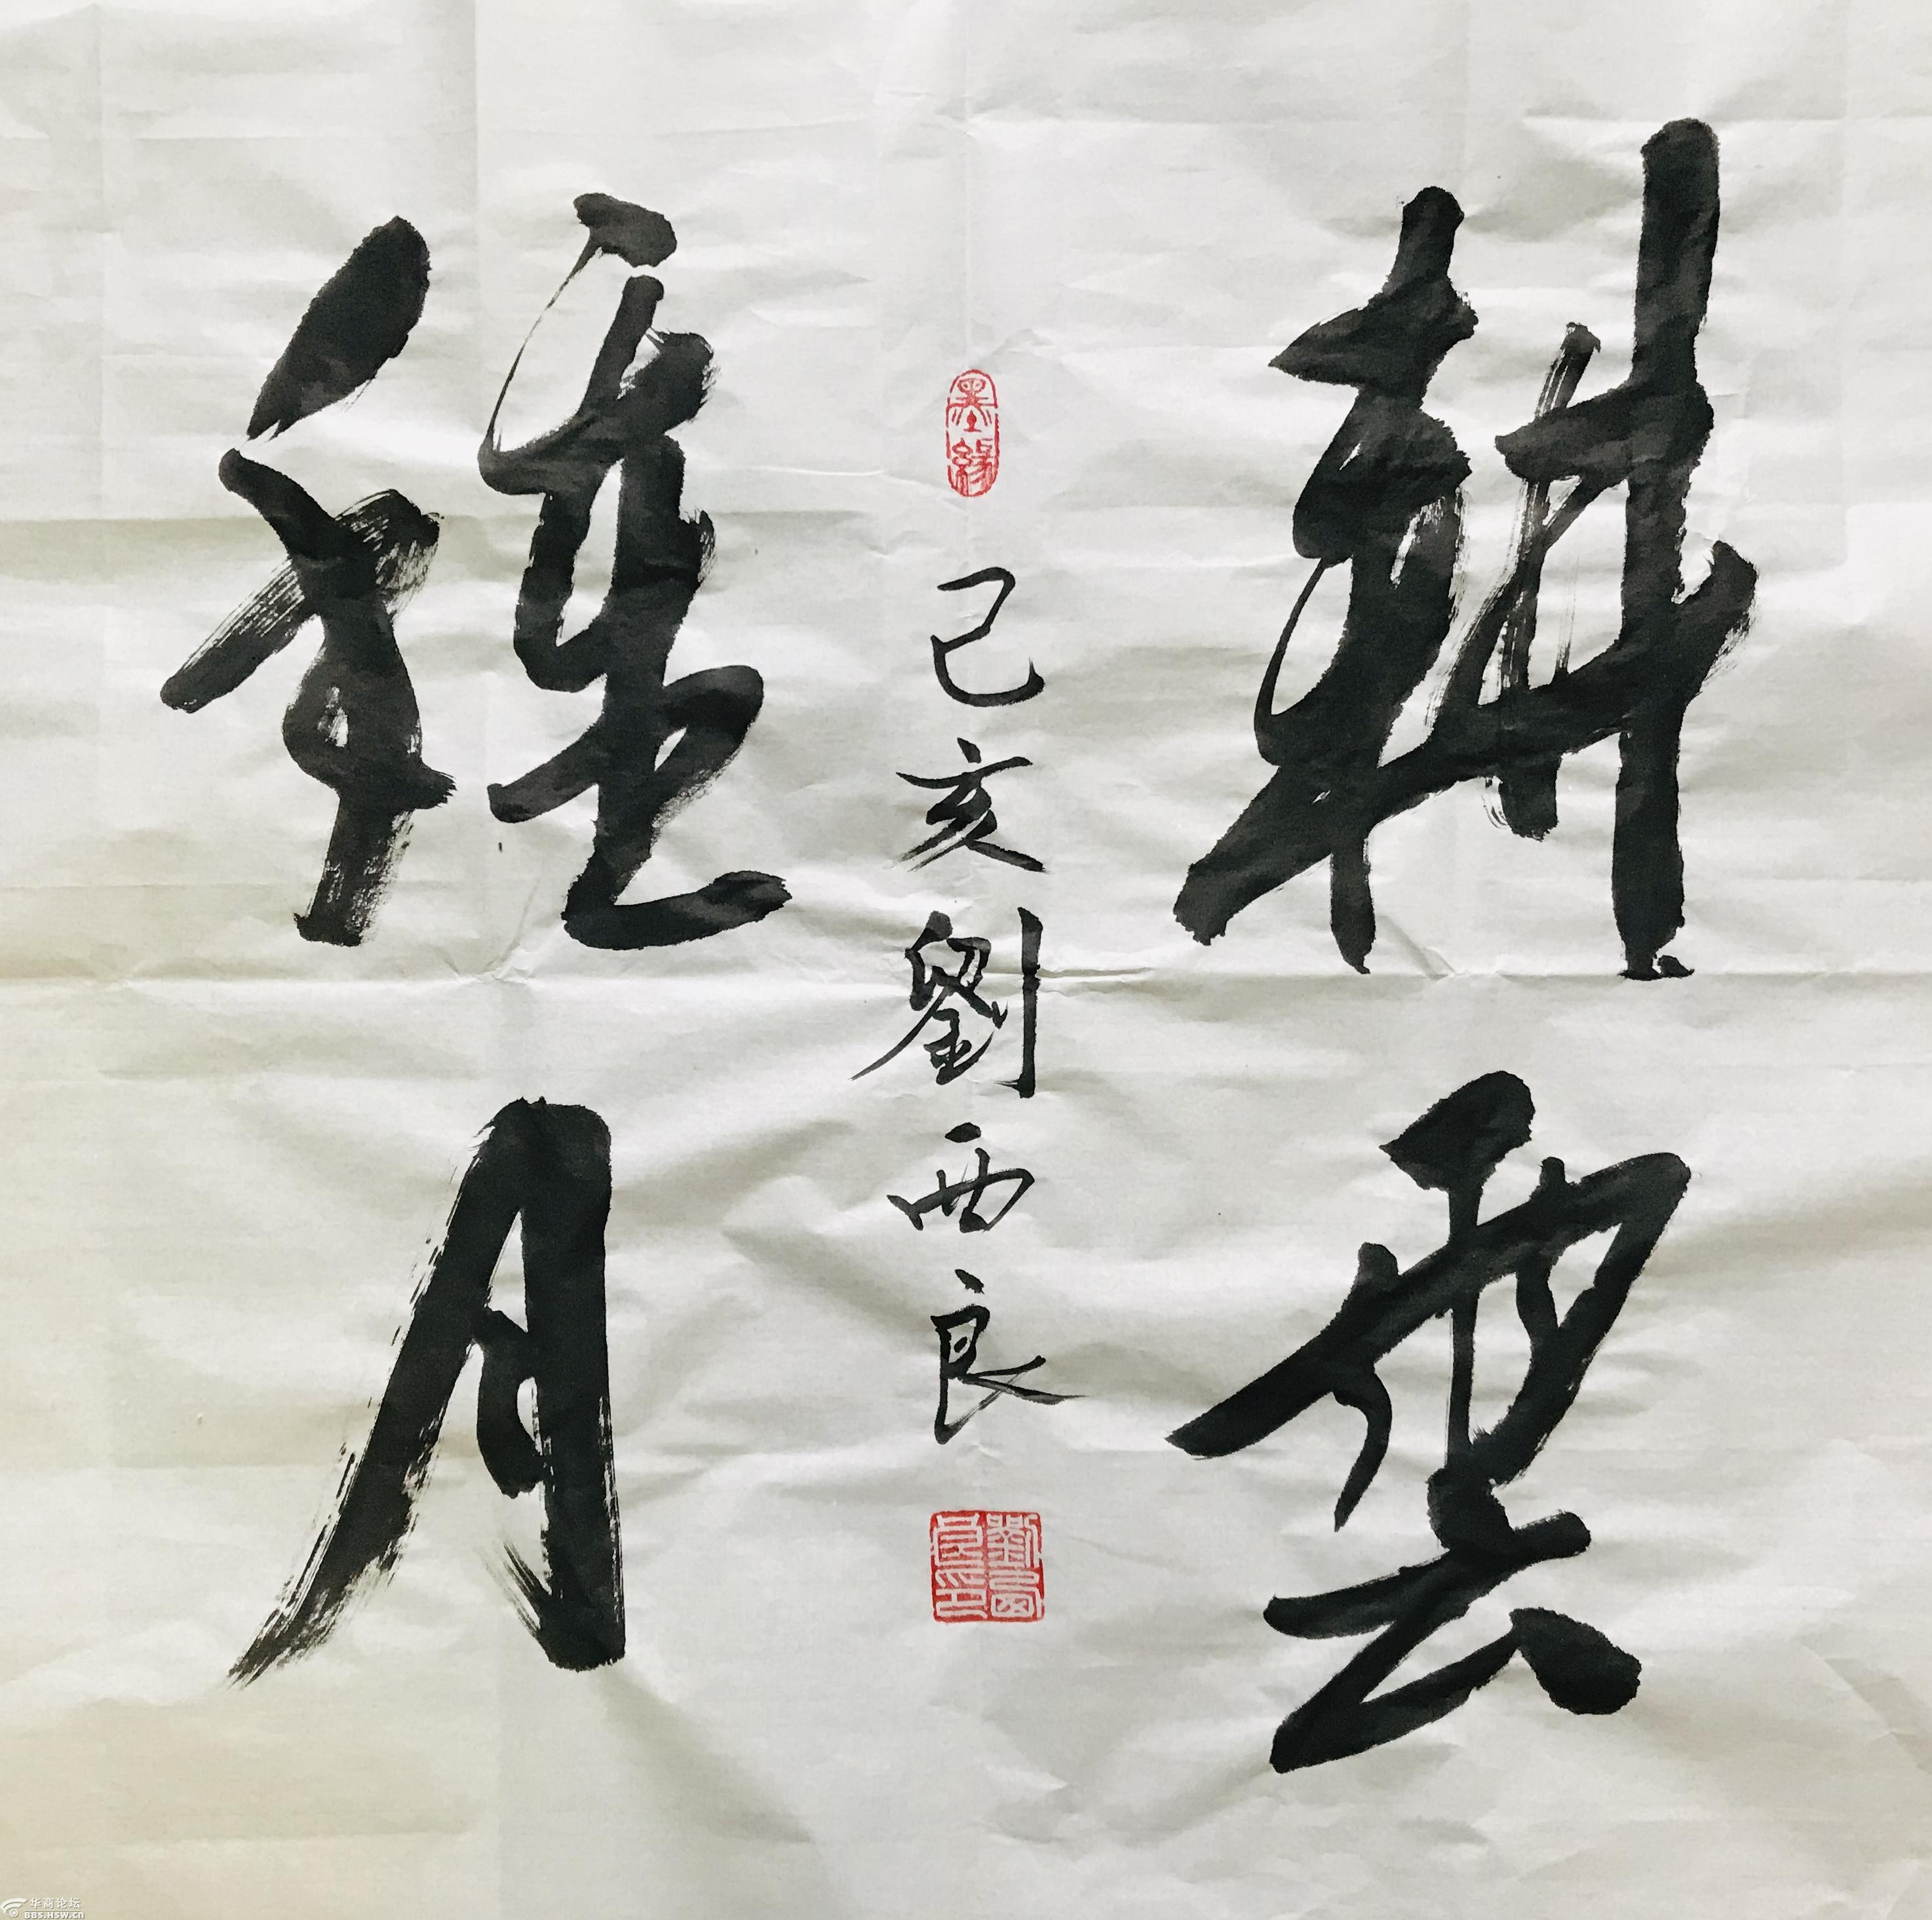 耕雲
種月
墨緣
己亥劉西良
劉西良印
华商论坛
BBS.HSW.CN